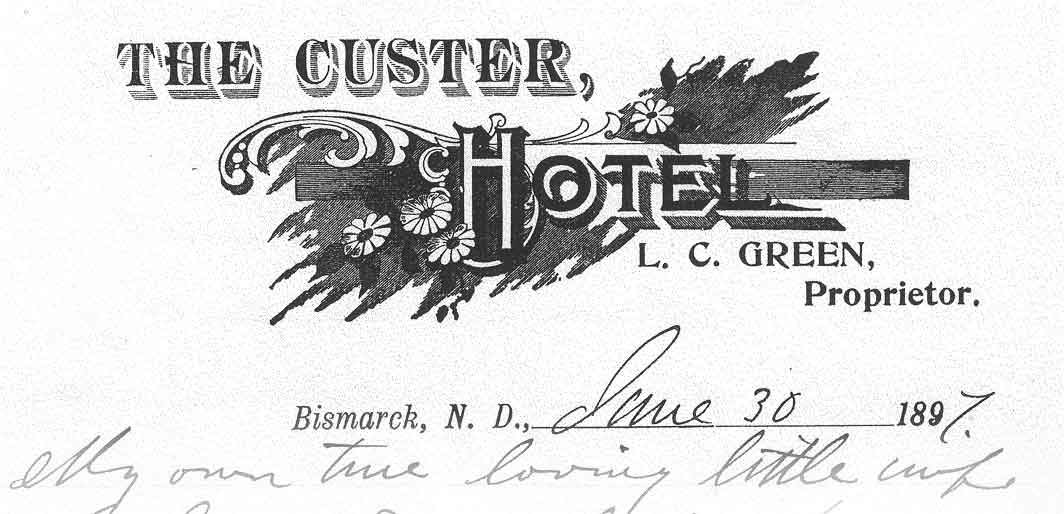 THE CUSTER,
HOTEL
L. C. GREEN,
Proprietor.
Bismarck, N. D., June 30 1897.
My own true loving little wife